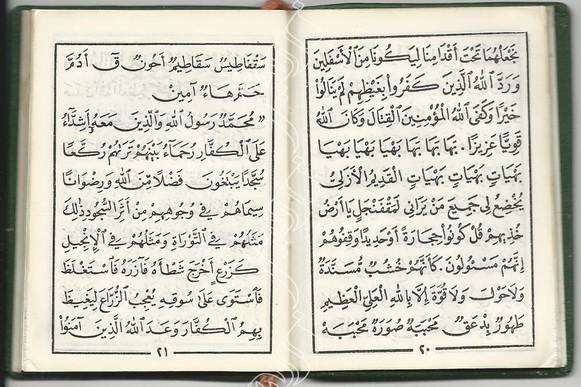 نَجْعَلْهُمَا تَحْتَ أَقْدَامِنَا لِيَكُونَا مِنَ الْأَسْفَلِينَ
وَرَدَّ اللهُ الَّذِينَ كَفَرُوا بِغَيْظِهِمْ لَمْ يَنَالُوا
خَيْرًا وَكَفَى اللهُ الْمُؤْمِنِينَ الْقِتَالَ وَكَانَ اللهُ
قَوِيًّا عَزِيزًا. بَهَا بَهَا بَهَا بَهْيَا بَهْيَا بَهْيَا
بَهْيَاتٍ بَهْيَاتٍ بَهْيَاتٍ الْقَدِيمُ الْأَزَلِيُّ
يَخْضَعُ لِي جَمِيعُ مَنْ يَرَانِي لَمَقْفَنْجَلٍ يَا أَرْضُ
خُذِيهِمْ قُلْ كُونُوا حِجَارَةً أَوْ حَدِيدًا وَقِفُوهُمْ
إِنَّهُمْ مَسْئُولُونَ. كَأَنَّهُمْ خُشُبٌ مُسَنَّدَةٌ
وَلَا حَوْلَ وَلَا قُوَّةَ إِلَّا بِاللهِ الْعَلِيِّ الْعَظِيمِ
طَهُورٌ بِدْعَقٌ مَحْبَبَهْ صُورَهْ مَحْبَبَهْ
٢٠
سَقْفَاطِيسٌ سَقَاطِيمٌ أَحُونٌ قٓ أَدُمَّ
حَمَّ هَاءٌ آمِينْ
« مُحَمَّدٌ رَسُولُ اللهِ وَالَّذِينَ مَعَهُ أَشِدَّاءُ
عَلَى الْكُفَّارِ رُحَمَاءُ بَيْنَهُمْ تَرَاهُمْ رُكَّعًا
سُجَّدًا يَبْتَغُونَ فَضْلًا مِنَ اللهِ وَرِضْوَانًا
سِيمَاهُمْ فِي وُجُوهِهِمْ مِنْ أَثَرِ السُّجُودِ ذَلِكَ
مَثَلُهُمْ فِي التَّوْرَاةِ وَمَثَلُهُمْ فِي الْإِنْجِيلِ
كَزَرْعٍ أَخْرَجَ شَطْأَهُ فَآزَرَهُ فَاسْتَغْلَظَ
فَاسْتَوَى عَلَى سُوقِهِ يُعْجِبُ الزُّرَّاعَ لِيَغِيظَ
بِهِمُ الْكُفَّارَ وَعَدَ اللهُ الَّذِينَ آمَنُوا
٢١